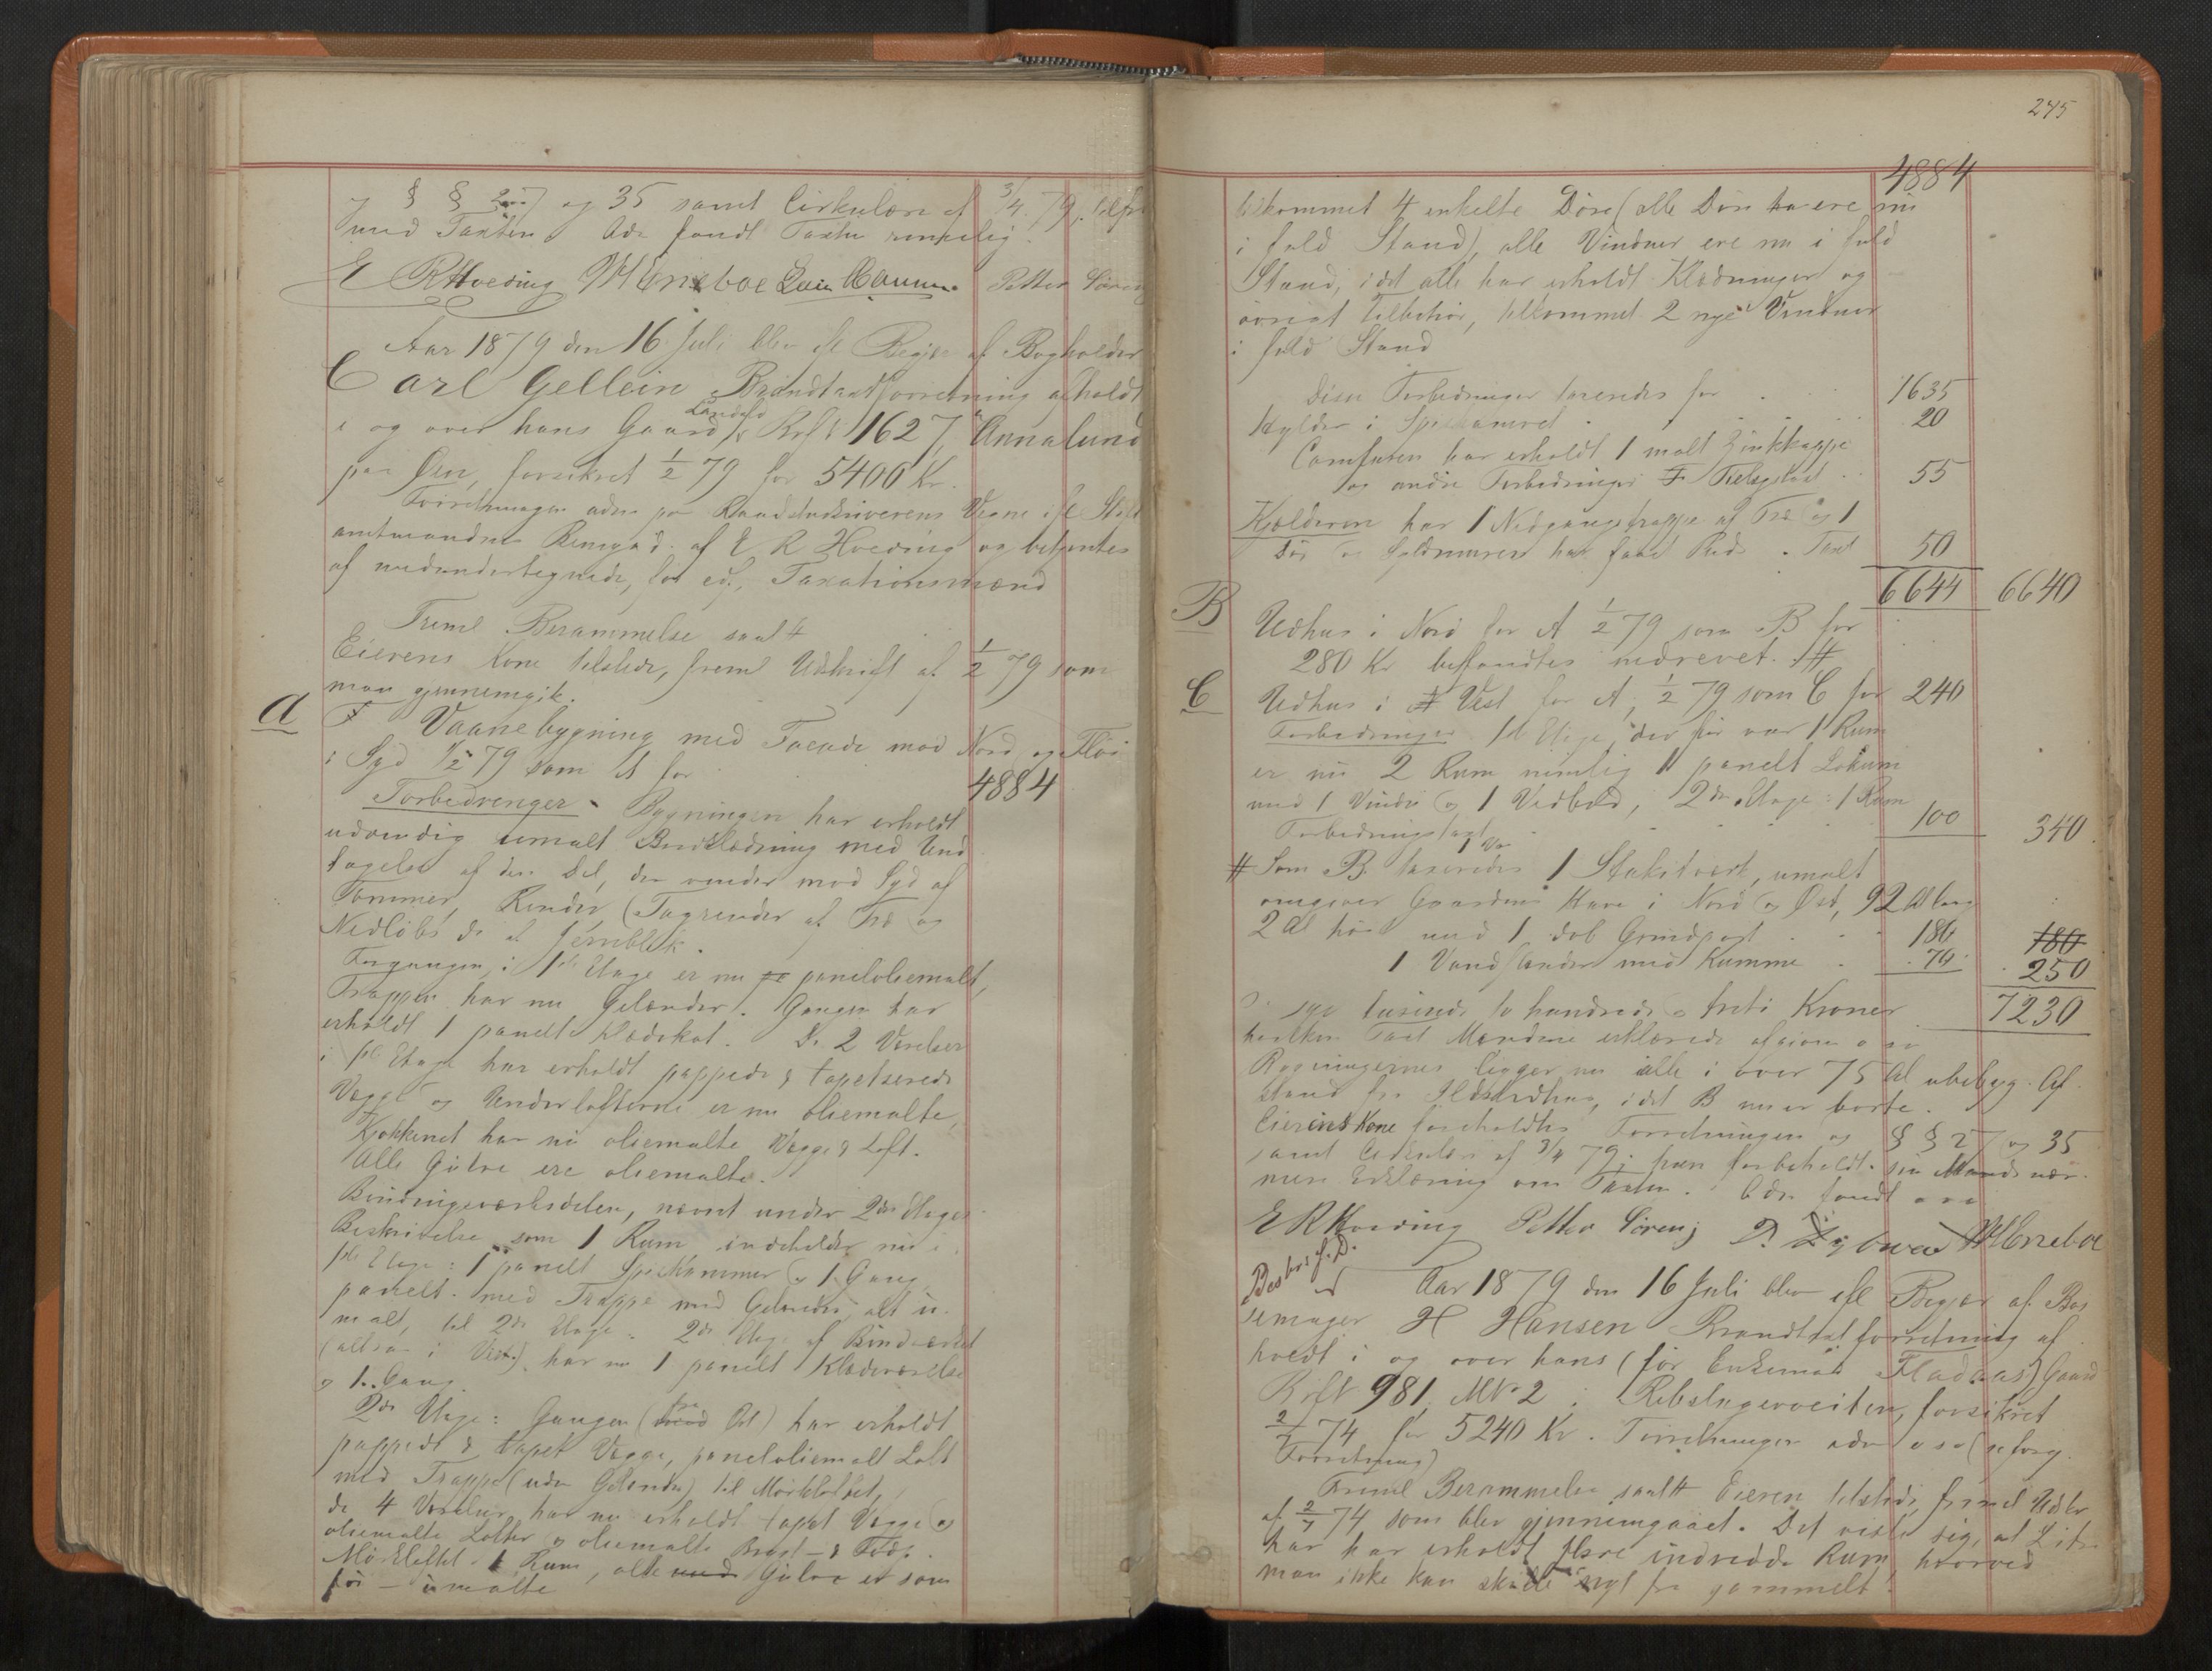 § § 27 og 35 samt Cirkulære af 3/4 79, tilfr
med Taxten. Adm fandt Taxten rimelig.
E R Hveding M Enseboe Petter Sørens
Aar 1879 den 16 Juli blev efl Begjær af Bogholder
Carl Gellein Brandtaxtforretning afholdt
i og over hans Gaard Landsfo Brf № 1627, "Annalund
paa Øen, forsikret 1/2 79 for 5400 Kr.
Forretningen adm paa Raadstuskriverens Vegne ifl Stift
amtmandens Bemynd. af E R Hveding og betjentes
af nedundertegnede, før edf, Taxationsmænd
Freml Berammelse saal #
Eierens Kone tilstede, freml Udskrift af 1/2 79 som
man gjennemgik.
A
Vaanebygning med Facade mod Nord og Fløi
i Syd 1/2 79 som A for
4884
Forbedringer. Bygningen har erholdt
udvendig umalt Bordklædning med Und
tagelse af den Del, der vender mod Syd af
Tømmer, Render (Tagrender af Træ og
Nedløbs do af Jernblik.
Forgangen i 1ste Etage er nu paneloliemalt,
Trappen har nu Gelænder. Gangen har
erholdt 1 panelt Klædskot. De 2 Værelser
i 1ste Etage har erholdt pappede & tapetserede
Vægge og Underlofterne er nu oliemalte,
Kjøkkenet har nu oliemalte Vægge & Loft.
Alle Gulve ere oliemalte.
Bindingsværksdelen, nævnt under 2den Etages
Beskrivelse som 1 Rum indeholder nu i
1ste Etage: 1 panelt Spiskammer og 1 Gang,
panelt. med Trappe med Gelænder, alt u-
malt, til 2den Etage. 2den Etage af Bindværket
(altsaa i Vest) har nu 1 panelt Klædeværelse
og 1 Gang
2den Etage: Gangen (fra Øst) har erholdt
pappede & tapet Vægge, paneloliemalt Loft
med Trappe (uden Gelænder) til Mørkloftet,
de 4 Værelser har nu erholdt tapet Vægge og
oliemalte Lofter og oliemalte Bryst- & Fodp.
Mørkloftet 1 Rum, alle Gulve er som
før - umalte
245
4884
tilkommet 4 enkelte Døre (alle Døre ere nu
i fuld Stand), alle Vinduer ere nu i fuld
Stand, idet alle har erholdt Klædninger og
øvrigt Tilbehør, tilkommet 2 nye Vinduer
i fuld Stand
Disse Forbedringer taxeredes for 1635
Hylder i Spiskamret 20
Comfuren har erholdt 1 malt Zinkkappe
og andre Forbedringer 55
Kjælderen har 1 Nedgangstrappe af Træ og 1
Dør og Gulvmuren har faaet Puds. Taxt 50
6644 6640
B
Udhus i Nord for A 1/2 79 som B for
280 Kr befandtes nedrevet. #
C
Udhus i Vest for A, 1/2 79 som C for 240
Forbedringer 1ste Etage, der før var 1 Rum
er nu 2 Rum nemlig 1 panelt Lokum
med 1 Vindu og 1 Vedbod, 2den Etage: 1 Rum
Forbedringstaxt 100 340
# Som B taxeredes 1 Stakitværk, umalt
omgiver Gaardens Have i Nord og Øst, 92 Al lang
2 Al høi med 1 dob Grindport 180 180
1 Vand med Kumme 70 250
7230
syv tusinde to hundrede og treti Kroner
hvilken Taxt Mændene erklærede afgiven o s v
Bygningernes ligger nu alle i over 75 Al ubebyg. Af
stand fra Ildstedhus, idet B nu er borte.
Eierens Kone foreholdtes Forretningen og § § 27 og 35
samt Cirkulære af 3/4 79; hun forbeholdt sin Mands nær-
mere Erklæring om Taxten. Adm fandt o s v
E R Hveding Petter Sørensj M Enseboe
Aar 1879 den 16 Juli blev efl Begjær af Bøs
semager H Hansen Brandtaxtforretning af
holdt i og over hans (før Enkemad Fladaas) Gaard
Brfl 981, M№ 2 i Rebslagerveiten, forsikret
2/7 74 for 5240 Kr. Forretningen adm o s v (se forrg
Forretning)
Freml Berammelse saalt # Eieren tilstede, freml Udskr
af 2/7 74 som blev gjennemgaaet. Det viste sig, at
har erholdt flere indredde Rum, hvorved
man ikke kan skille nyt fra gammelt.